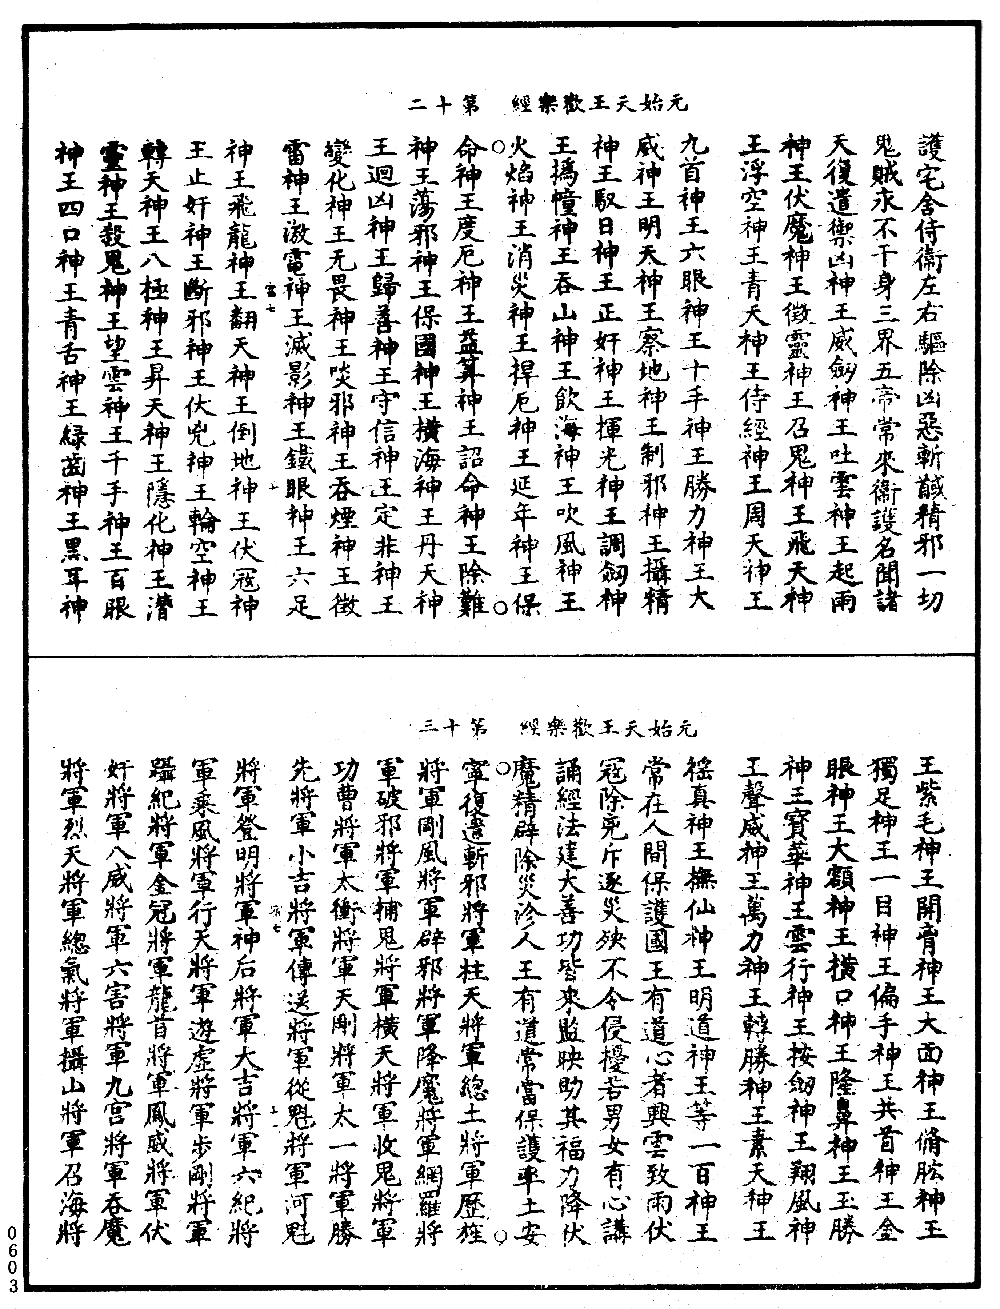 元始天王歡樂經　第十二
護宅舍侍衛左右驅除凶惡斬馘精邪一切
鬼賊永不干身三界五帝常來衛護名聞諸
天復遣禦凶神王威劒神王吐雲神王起雨
神王伏魔神王徵靈神王召鬼神王飛天神
王浮空神王青天神王侍經神王周天神王
九首神王六眼神王十手神王勝力神王大
威神王明天神王察地神王制邪神王攝精
神王馭日神王正奸神王揮光神王調劒神
王撝幢神王吞山神王飲海神王吹風神王
火焰神王消災神王捍厄神王延年神王保
命神王度厄神王益筭神王詔命神王除難
神王蕩邪神王保國神王橫海神王丹天神
王迴凶神王歸善神王守信神王定非神王
變化神王无畏神王啖邪神王吞煙神王徵
雷神王激電神王滅影神王鐵眼神王六足
神王飛龍神王翻天神王倒地神王伏寇神
王止奸神王斷邪神王伏兇神王輪空神王
轉天神王八極神王昇天神王隱化神王潛
靈神王殺鬼神王望雲神王千手神王百眼
神王四口神王青舌神王綠齒神王黑耳神
元始天王歡樂經　第十三
王紫毛神王開膺神王大面神王脩肱神王
獨足神王一目神王偏手神王共首神王金
眼神王大額神王橫口神王隆鼻神王玉勝
神王寶華神王雲行神王按劒神王翔風神
王聲威神王萬力神王轉勝神王素天神王
徭真神王撫仙神王明道神王等一百神王
常在人間保護國王有道心者興雲致雨伏
寇除兇斥逐災殃不令侵擾若男女有心講
誦經法建大善功皆來監映助其福力降伏
魔精辟除災沴人王有道常當保護率土安
寧復遣斬邪將軍柱天將軍總土將軍歷旌
將軍剛風將軍辟邪將軍降魔將軍網羅將
軍破邪將軍捕鬼將軍橫天將軍收鬼將軍
功曹將軍太衝將軍天剛將軍太一將軍勝
先將軍小吉將軍傳送將軍從魁將軍河魁
將軍登明將軍神后將軍大吉將軍六紀將
軍乘風將軍行天將軍遊虛將軍步剛將軍
躡紀將軍金冠將軍龍首將軍鳳威將軍伏
奸將軍八威將軍六害將軍九宮將軍吞魔
將軍烈天將軍總氣將軍攝山將軍召海將
0603